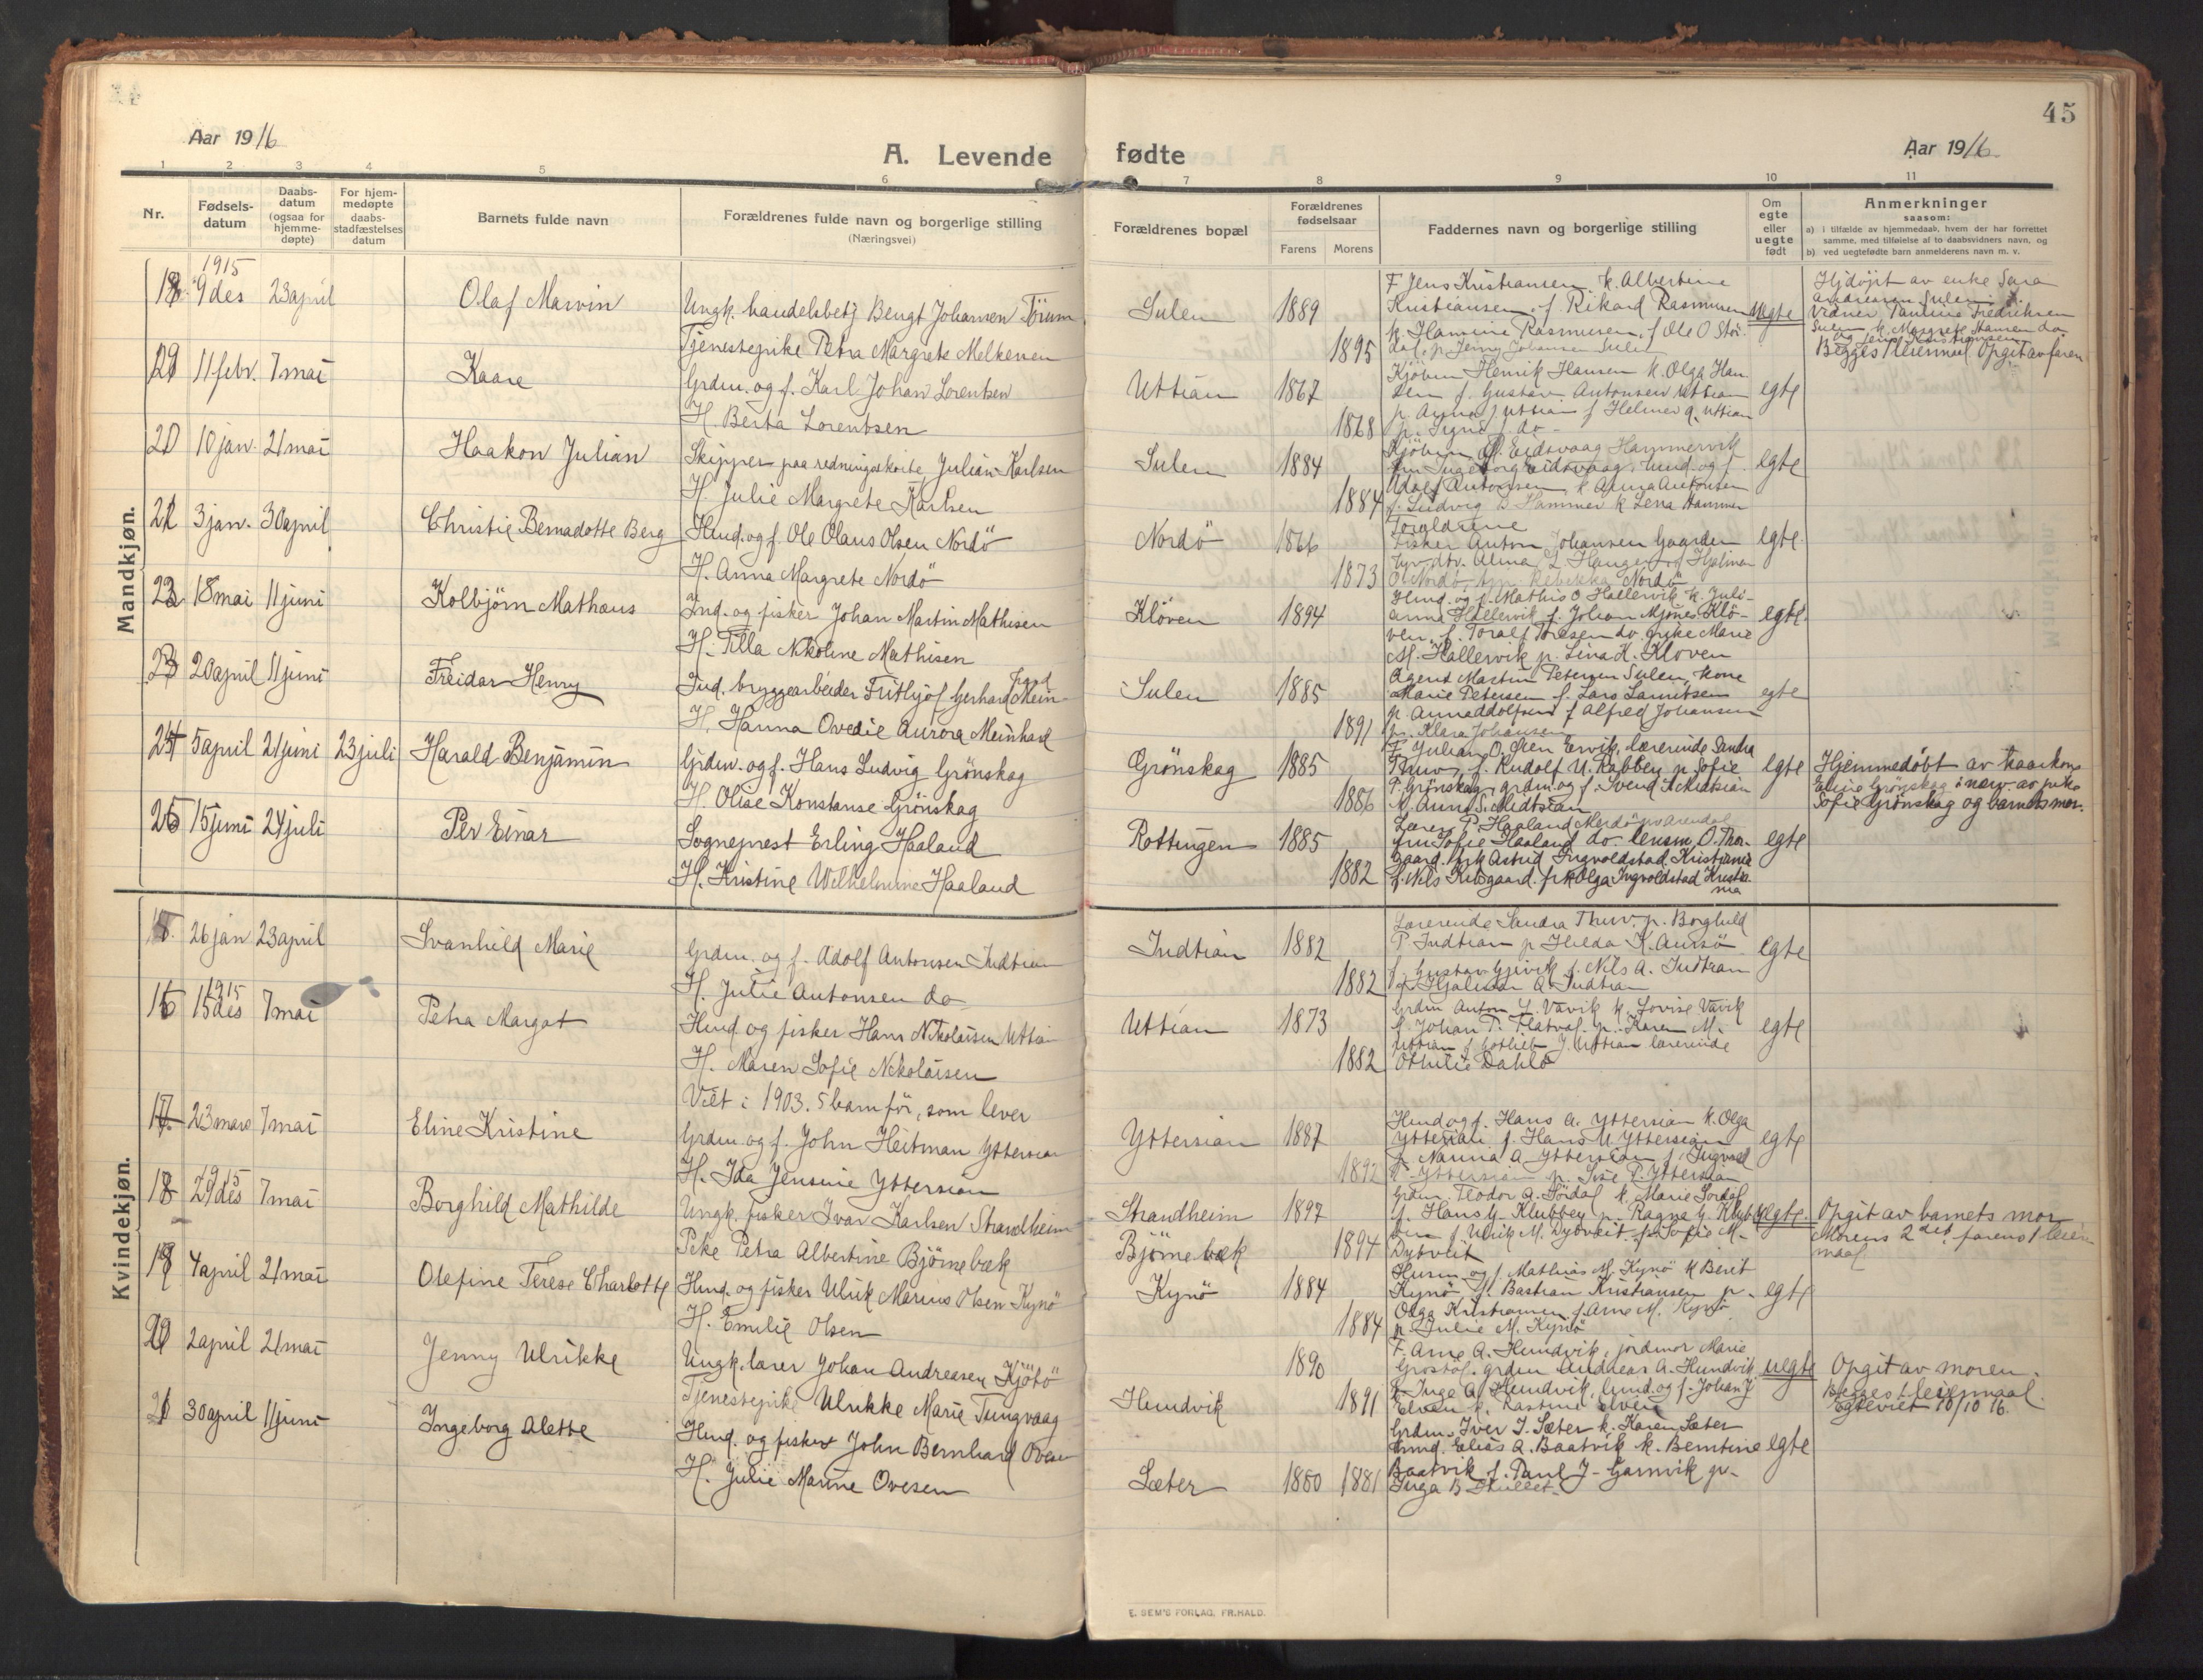 45
Aar 1916
A. Levende fødte
Aar 1916
1 2 3 4 5 6 7 8 9 10 11
Nr.
Fødsels-
datum
Daabs-
datum
(ogsaa for
hjemme-
døpte)
For hjem-
medøpte
daabs-
stadfæstelses
datum
Barnets fulde navn
Forældrenes fulde navn og borgerlige stilling
(Næringsvei)
Forældrenes bopæl
Forældrenes
fødselsaar
Farens Morens
Faddernes navn og borgerlige stilling
Om
egte
eller
uegte
født
Anmerkninger
saasom:
a) i tilfælde av hjemmedaab, hvem der har forrettet
samme, med tilføielse af to daabsvidners navn, og
b) ved uegtefødte barn anmelderens navn m. v.
Mandkjøn.
1915
18. 9 des 23 april Olaf Marvin
Ungk. handelsbetj Bengt Johansen
Tjenestepike Petra Margrete Melkenen
Sulen 1889 1895
F Jens Kristiansen, k. Albertine
Kristiansen, f. Rikard Rasmussen
k. Hamine Rasmusen, f Ole O Stör-
dal, p. Jenny Johansen Sulen
uegte
Hjdöpt av enke Sara
Andreasen Sulen.
Vidner Pauline Fredriksen
Sulen, k. Margrete Hansen do
og Jens Kristiansen
Begges 1 leiermaal. Opgit av faren
11 febr. 7 mai Kaare
Grdm. og f. Karl Johan Lorentsen
H. Berta Lorentsen
Uttian 1867 1868
Kjöbm Henrik Hansen k. Olga Han-
sen f. Gustav Antonsen Uttian
p. Anna J Uttian f Helmer A. Uttian
p. Signe J. do -
egte
10 jan. 21 mai Haakon Julian
Skipper paa redningsskoite Julian Karlsen
H. Julie Margrete Karlsen
Sulen 1884 1884
Kjöbm O. Eidsvaag Hammervik
fru Ingeborg Eidsvaag, hmd. og f.
Adolf Antonsen, k Anna Antonsen
f. Ludvig B Hammer k Lena Hammer
egte
3 jan. 30 april Christie Bernadotte Berg
Hmd. og f. Ole Olaus Olsen Nordö
H. Anna Margrete Nordö
Nordö 1866 1873
Foraldrene
Fisker Anton Johansen Gaarden
Alma L Hangen og Hjalmar
O Nordö Rebekka Nordö
egte
18 mai 11 juni Kolbjörn Mathæus
Ind. og fisker Johan Martin Mathisen
H. Tilla Nikoline Mathisen
Klöven 1894
Hmd. og f. Mathis O Hallervik k. Juli-
anna Hallervik f. Johan Mjönes Klö-
ven, f. Toralf Toresen do. pike Marie
M. Hallervik p. Lina K. Kloven
egte
20 april 11 juni Freidar Henry
Ind. bryggearbeider Frithjof Gerhard Mein-
hard
H. Hanna Ovedie Aurora Meinhard
Sulen 1885 1891
Agent Martin Petersen Sulen, kone
Marie Petersen f. Lars Lauritsen
p. Anna Adolfsen f Alfred Johansen
p. Klara Johansen
egte
24 5 april 21 juni 23 juli Harald Benjamin
Grdm. og f. Hans Ludvig Grönskag
H. Olise Konstanse Grönskag
Grönskag 1885 1886
F. Julian O. Steen Ervik, lærerinde Sandra
Thuv, f. Rudolf U. Rabbey p Sofie
P. Grönskag, grdm. og f. Svend S Midtsian
k. Anna S. Midtsian
egte
Hjemmedöbt av kaarkone
Eline Grönskag i nærv. av pike
Sofie Grönskag og barnets mor.
15 juni 24 juli Per Einar
Sogneprest Erling Haaland
H. Kristine Wilhelmine Haaland
Rottingen 1885 1882
Lærer P. Haaland Merdö pr Arendal
fru Sofie Haaland do - lensm. O. Thor-
gaard, frk Astrid Ingvoldstad Kristiania
h. Nils Kvisgaard. frk Olga Ingvoldstad Kristia-
nia
egte
Kvindekjøn.
15. 26 jan 23 april Svanhild Marie
Grdm. og f. Adolf Antonsen Indtian
H. Julie Antonsen do
Indtian 1882 1882
Lærerinde Sandra Thuv. p. Borghild
P Indtian p Hilda K. Aunsö
f. Gustav Gjevik f. Nils A. Indtian
p Hjalmar A Indtian
egte
1915
16 15 des 7 mai Petra Margot
Hmd og fisker Hans Nikolaisen Uttian
H. Maren Sofie Nikolaisen
Viet i 1903. 5 barn för, som lever
Uttian 1873 1882
Grdm Anton L. Vavik k. Lovise Vavik
f. Johan P. Flatval. p. Karen M.
Uttian f Gotlieb J. Uttian lærerinde
Othilie Dahlö
egte
17. 23 mars 7 mai Eline Kristine
Grdm og f. John Heitman Yttersian
H. Ida Jensine Yttersian
Yttersian 1887 1892
Hmd og f. Hans A. Yttersian k. Olga
Yttersian f. Hans U Yttersian
p Nanna A Yttersian f. Ingvald
P. Yttersian p. Lise P. Yttersian
egte
1915
18 29 des 7 mai Borghild Mathilde
Ungk. fisker Ivar Karlsen Strandheim
Pike Petra Albertine Björnebæk
Strandheim 1897
Björnebæk 1894
Grdm. Teodor A. Sördal k. Marie Sordal
f. Hans G. Klubbey p. Ragna G. Klub-
f Ulrik M. Dybveit p. Sofie M.
Dybveit
uegte.
Opgit av barnets mor
Morens 2det farens 1 leier-
maal
19 4 april 21 mai Olefine Terese Charlotte
Hmd. og fisker Ulrik Marius Olsen Kynö
H. Emilie Olsen
Kynö 1884 1884
Husm og f. Mathias M. Kynö k Berit
Kynö f. Bastian Kristiansen p.
Olga Kristiansen f. Arne M. Kynö
p. Julie M. Kynö
egte
20 2 april 21 mai Jenny Ulrikke
Ungk. lærer Johan Andreasen Kjötö
Tjenestepike Ulrikke Marie Tungvaag
Hemdvik 1890 1891
F. Arne A. Hemdvik, jordmor Marie
Grostöl. grdm Andreas A. Hundvik
k Inga A. Hemdvik, hmd. og f. Johan J
Elven k. Rastine Elven
uegte
Opgit av moren.
Begges 1 leiermaal.
Egteviet 10/10 16.
21 30 april 11 juni Ingeborg Alette
Hmd. og fisker John Bernhard Ovesen
H. Julie Marine Ovesen
Sæter 1880 1881
Grdm. Iver I. Sæter k. Karen Sæter
hmd. Elias A. Baatvik k. Berntine
Baatvik f. Paul J. Garnvik p.
Inga B
egte
E. SEM'S FORLAG, FR.HALD.